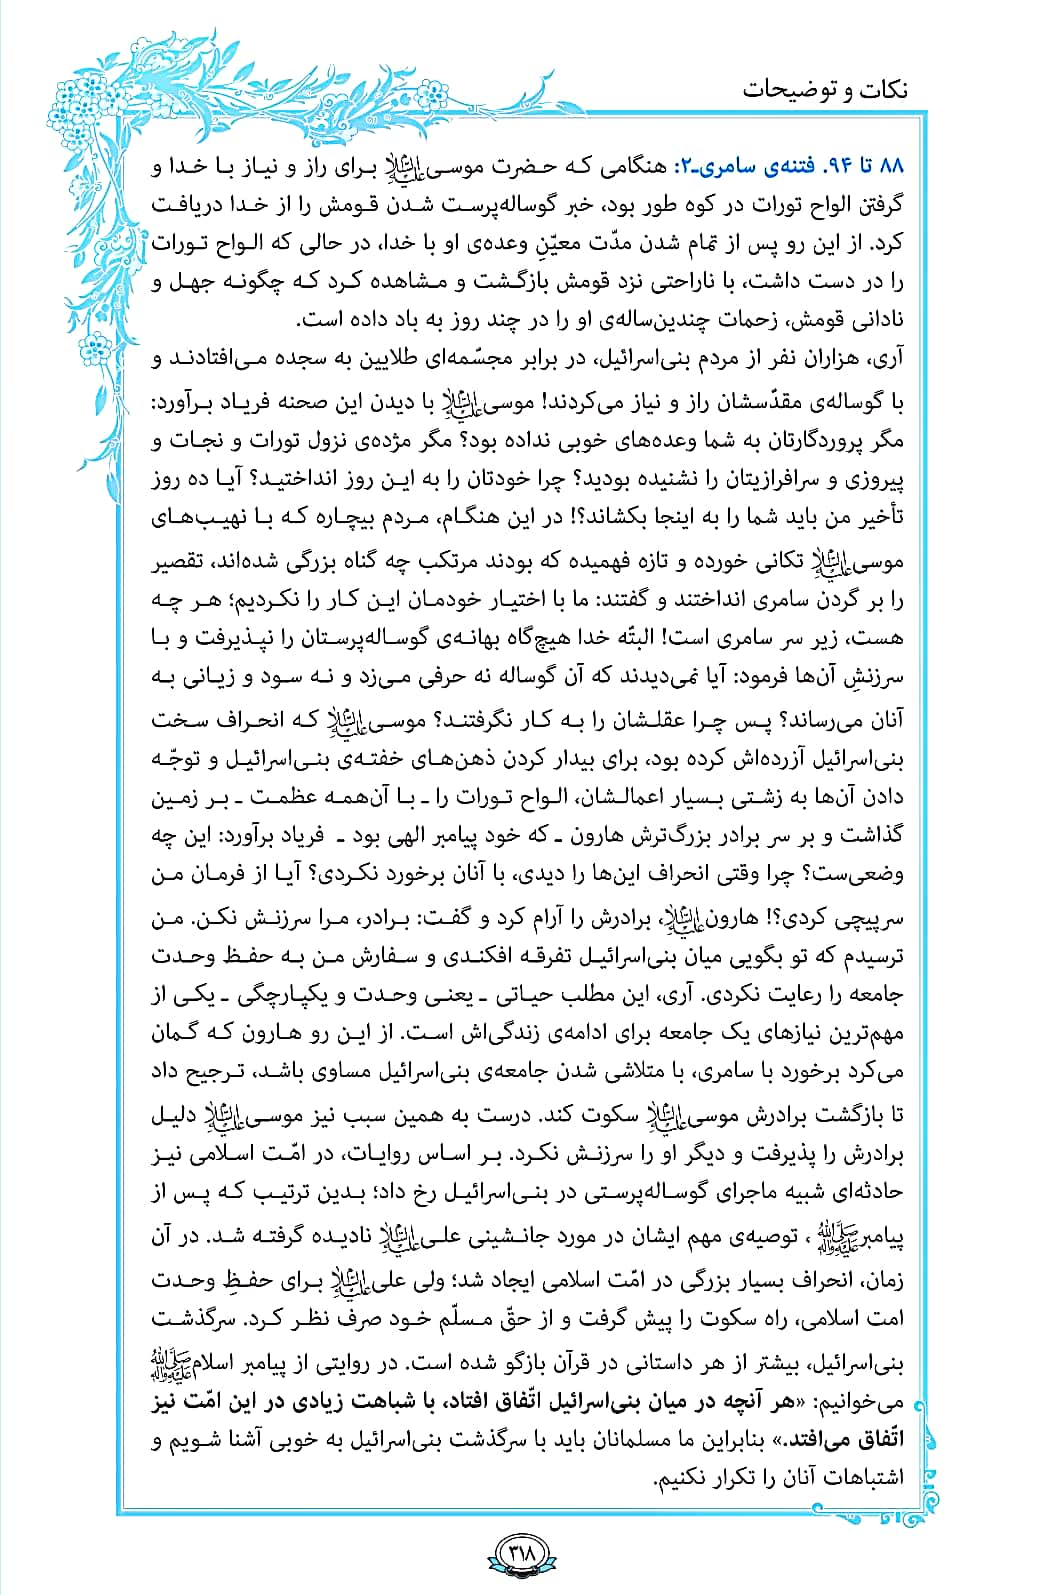 نکات و توضیحات
۸۸ تا ۹۴. فتنه‌ی سامری-۲: هنگامی که حضرت موسی علیه‌السلام برای راز و نیاز با خدا و
گرفتن الواح تورات در کوه طور بود، خبر گوساله‌پرست شدن قومش را از خدا دریافت
کرد. از این رو پس از تمام شدن مدّت معیّنِ وعده‌ی او با خدا، در حالی که الواح تورات
را در دست داشت، با ناراحتی نزد قومش بازگشت و مشاهده کرد که چگونه جهل و
نادانی قومش، زحمات چندین‌ساله‌ی او را در چند روز به باد داده است.
آری، هزاران نفر از مردم بنی‌اسرائیل، در برابر مجسّمه‌ای طلایین به سجده می‌افتادند و
با گوساله‌ی مقدّسشان راز و نیاز می‌کردند! موسی علیه‌السلام با دیدن این صحنه فریاد برآورد:
مگر پروردگارتان به شما وعده‌های خوبی نداده بود؟ مگر مژده‌ی نزول تورات و نجات و
پیروزی و سرافرازیتان را نشنیده بودید؟ چرا خودتان را به این روز انداختید؟ آیا ده روز
تأخیر من باید شما را به اینجا بکشاند؟! در این هنگام، مردم بیچاره که با نهیب‌های
موسی علیه‌السلام تکانی خورده و تازه فهمیده که بودند مرتکب چه گناه بزرگی شده‌اند، تقصیر
را بر گردن سامری انداختند و گفتند: ما با اختیار خودمان این کار را نکردیم؛ هر چه
هست، زیر سر سامری است! البتّه خدا هیچ‌گاه بهانه‌ی گوساله‌پرستان را نپذیرفت و با
سرزنشِ آن‌ها فرمود: آیا نمی‌دیدند که آن گوساله نه حرفی می‌زد و نه سود و زیانی به
آنان می‌رساند؟ پس چرا عقلشان را به کار نگرفتند؟ موسی علیه‌السلام که انحراف سخت
بنی‌اسرائیل آزرده‌اش کرده بود، برای بیدار کردن ذهن‌های خفته‌ی بنی‌اسرائیل و توجّه
دادن آن‌ها به زشتی بسیار اعمالشان، الواح تورات را ـ با آن‌همه عظمت ـ بر زمین
گذاشت و بر سر برادر بزرگ‌ترش هارون ـ که خود پیامبر الهی بود ـ فریاد برآورد: این چه
وضعی‌ست؟ چرا وقتی انحراف این‌ها را دیدی، با آنان برخورد نکردی؟ آیا از فرمان من
سرپیچی کردی؟! هارون علیه‌السلام، برادرش را آرام کرد و گفت: برادر، مرا سرزنش نکن. من
ترسیدم که تو بگویی میان بنی‌اسرائیل تفرقه افکندی و سفارش من به حفظ وحدت
جامعه را رعایت نکردی. آری، این مطلب حیاتی ـ یعنی وحدت و یکپارچگی ـ یکی از
مهم‌ترین نیازهای یک جامعه برای ادامه‌ی زندگی‌اش است. از این رو هارون که گمان
می‌کرد برخورد با سامری، با متلاشی شدن جامعه‌ی بنی‌اسرائیل مساوی باشد، ترجیح داد
تا بازگشت برادرش موسی علیه‌السلام سکوت کند. درست به همین سبب نیز موسی علیه‌السلام دلیل
برادرش را پذیرفت و دیگر او را سرزنش نکرد. بر اساس روایات، در امّت اسلامی نیز
حادثه‌ای شبیه ماجرای گوساله‌پرستی در بنی‌اسرائیل رخ داد؛ بدین ترتیب که پس از
پیامبر صلی‌الله‌علیه‌وآله، توصیه‌ی مهم ایشان در مورد جانشینی علی علیه‌السلام نادیده گرفته شد. در آن
زمان، انحراف بسیار بزرگی در امّت اسلامی ایجاد شد؛ ولی علی علیه‌السلام برای حفظِ وحدت
امت اسلامی، راه سکوت را پیش گرفت و از حقّ مسلّم خود صرف نظر کرد. سرگذشت
بنی‌اسرائیل، بیشتر از هر داستانی در قرآن بازگو شده است. در روایتی از پیامبر اسلام صلی‌الله‌علیه‌وآله
می‌خوانیم: «هر آنچه در میان بنی‌اسرائیل اتّفاق افتاد، با شباهت زیادی در این امّت نیز
اتّفاق می‌افتد.» بنابراین ما مسلمانان باید با سرگذشت بنی‌اسرائیل به خوبی آشنا شویم و
اشتباهات آنان را تکرار نکنیم.
۳۱۸